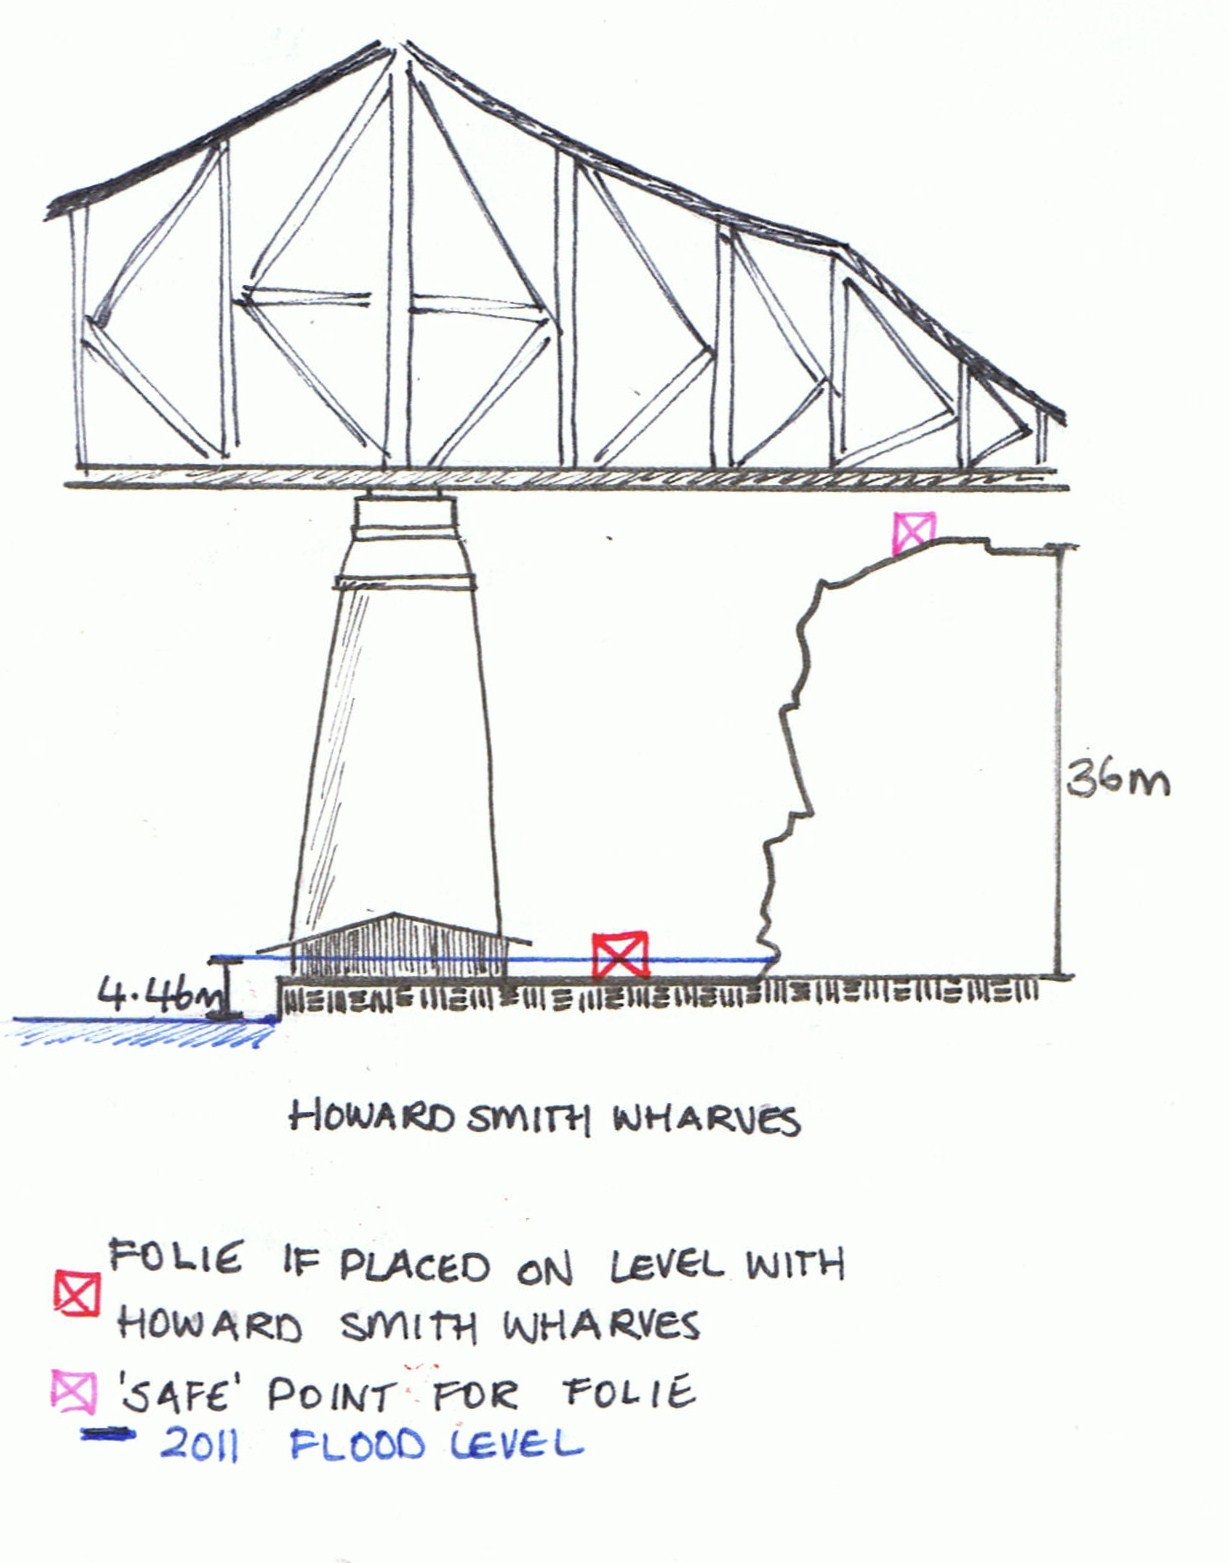 36m
4.46m
HOWARD SMITH WHARVES
FOLIE IF PLACED ON LEVEL WITH
HOWARD SMITH WHARVES
'SAFE' POINT FOR FOLIE
2011 FLOOD LEVEL